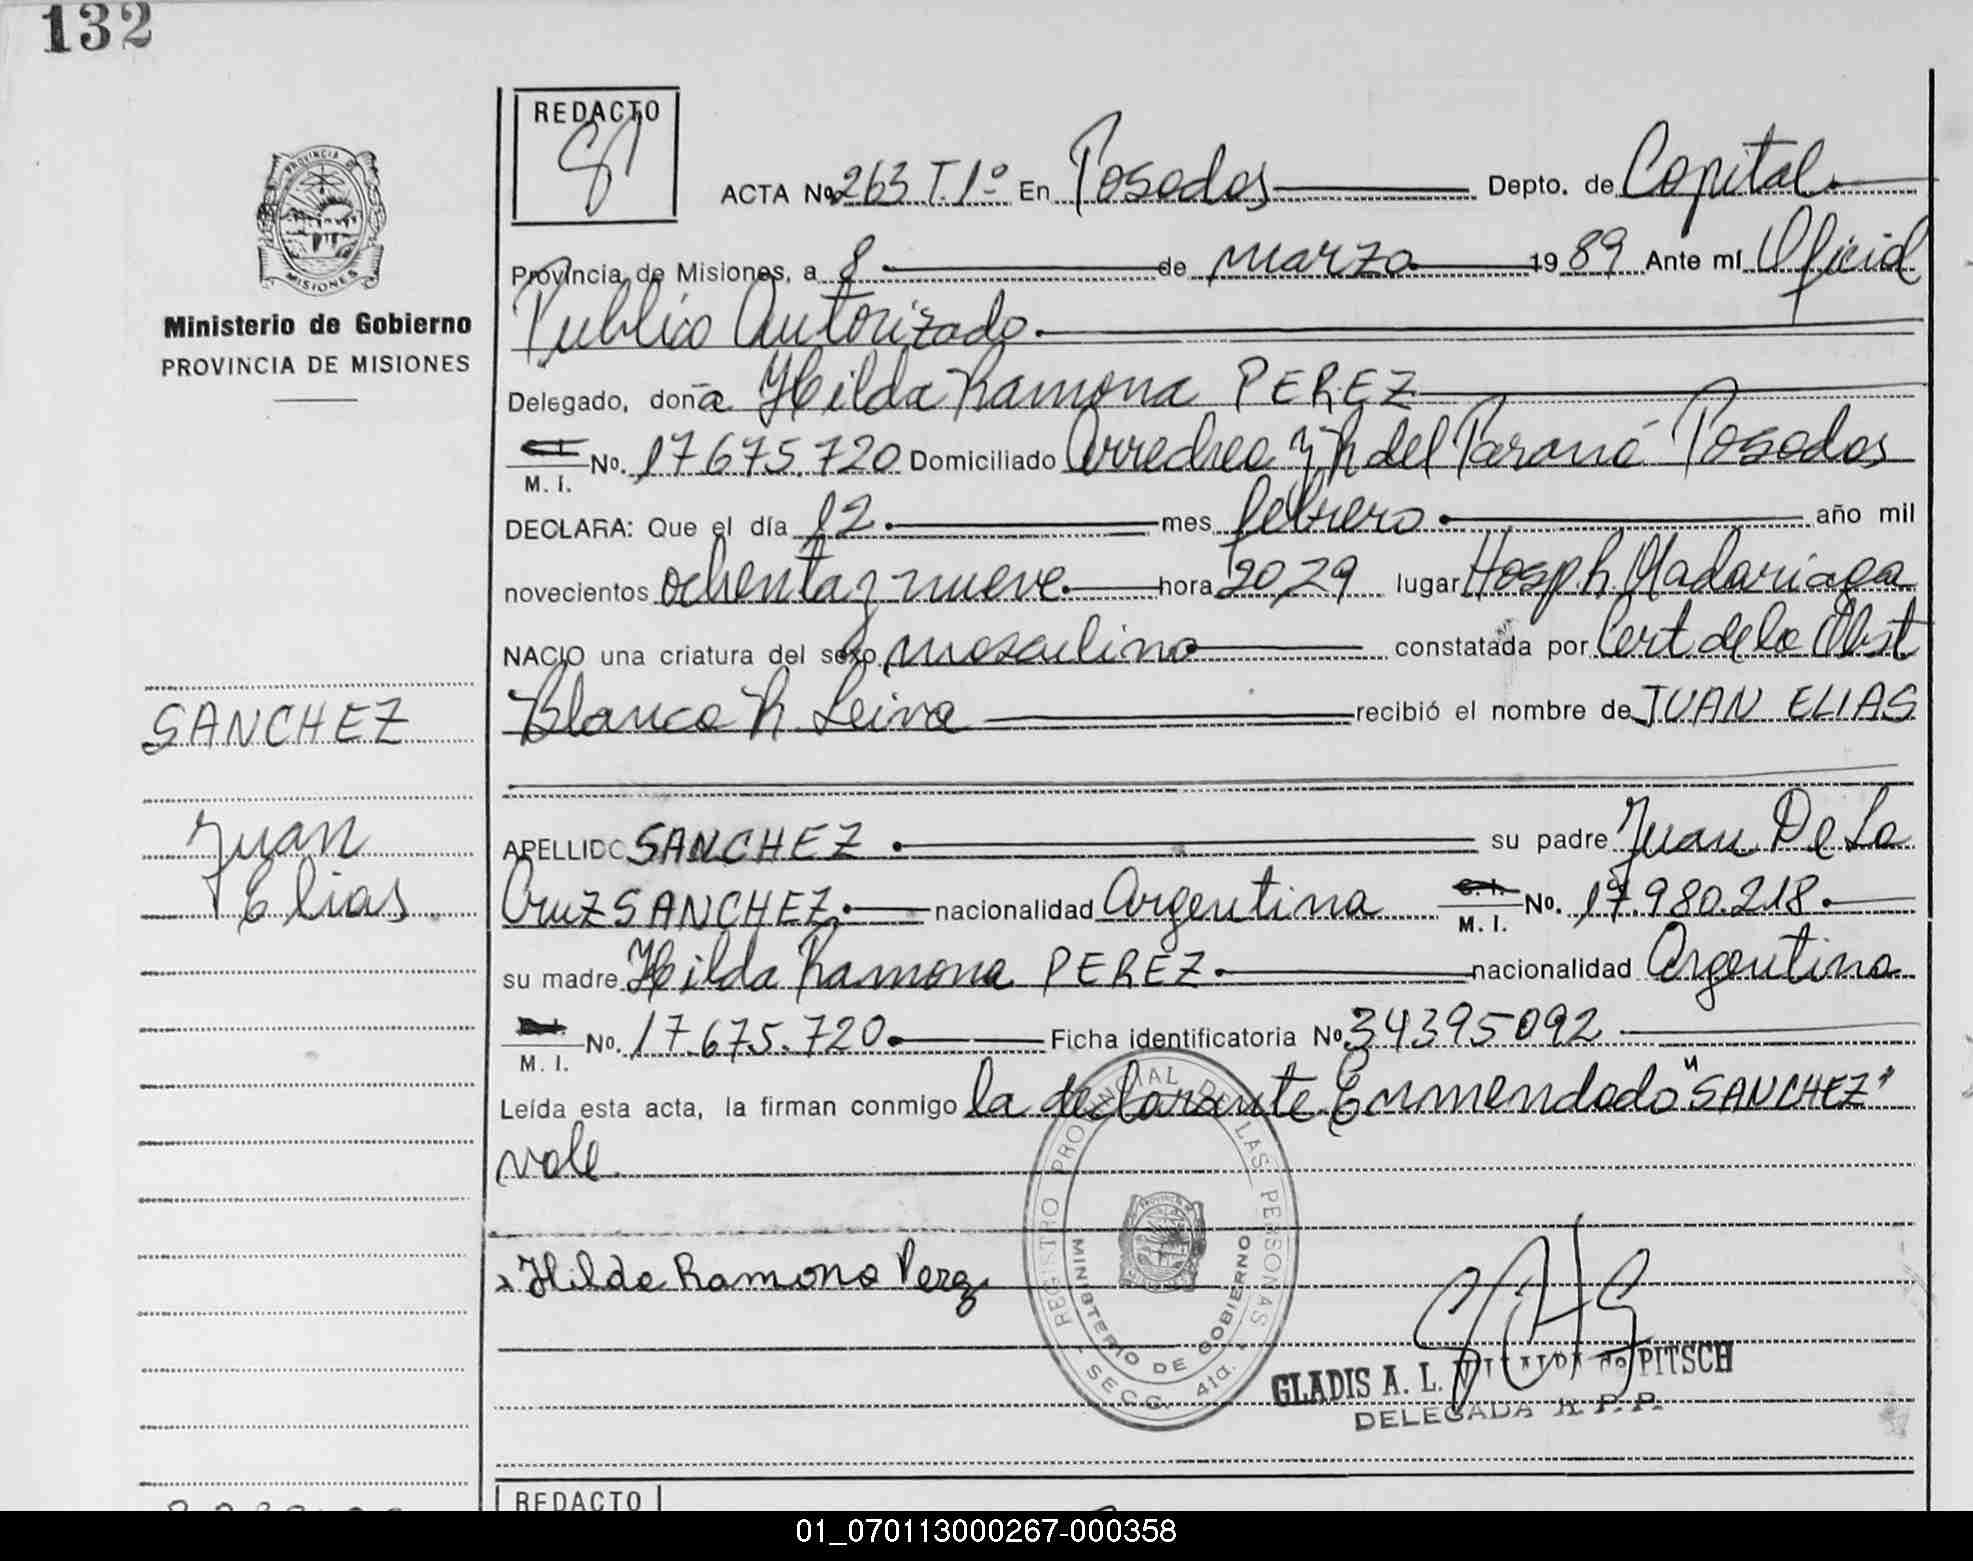 132
REDACTO
ACTA No. 263 T. 1º En Posadas Depto. de Capital
Provincia de Misiones, a 8 de marzo 1989 Ante mi Oficial
Publico Autorizado
Delegado, doña Hilda Ramona PEREZ
No. 17.675.720 Domiciliado Arrechea y R del Paraná Posadas
M. I.
DECLARA: Que el día 12 mes febrero año mil
novecientos ochenta y nueve hora 20,29 lugar Hosp. R. Madariaga
NACIO una criatura del sexo masculino constatada por Cert de la Obst
Blanca R Leiva recibió el nombre de JUAN ELIAS
APELLIDO SANCHEZ su padre Juan De La
Cruz SANCHEZ nacionalidad Argentina C. I. No. 17.980.218
M. I.
su madre Hilda Ramona PEREZ nacionalidad Argentina
No. 17.675.720 Ficha identificatoria No 34395092
M. I.
Leída esta acta, la firman conmigo la declarante Enmendado "SANCHEZ"
vale
Hilda Ramona Perez
PROVINCIA DE MISIONES
Ministerio de Gobierno
PROVINCIA DE MISIONES
SANCHEZ
Juan
Elias
REGISTRO PROVINCIAL DE LAS PERSONAS
MINISTERIO DE GOBIERNO
SECC. 41a.
GLADIS A. L. PITSCH
DELEGADA R. P. P.
REDACTO
01_070113000267-000358